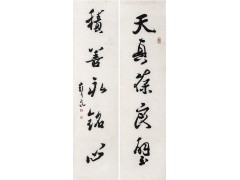 天真葆良知
積善永銘心